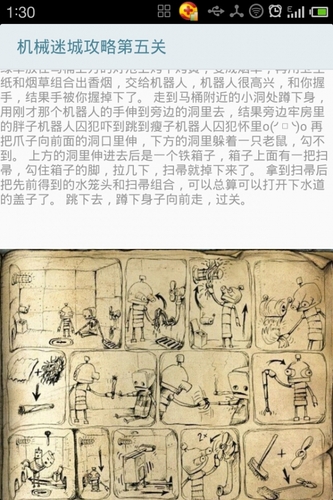 1:30
机械迷城攻略第五关
纸和烟草组合出香烟，交给机器人，机器人很高兴，和你握
手，结果手被你握掉下了。 走到马桶附近的小洞处蹲下身，
用刚才那个机器人的手伸到旁边的洞里去，结果旁边牢房里
的胖子机器人囚犯吓到跳到瘦子机器人囚犯怀里o(╯□╰)o 再
把爪子向前面的洞口里伸，下方的洞里躲着一只老鼠，勾不
到。 上方的洞里伸进去后是一个铁箱子，箱子上面有一把扫
帚，勾住箱子的脚，拉几下，扫帚就掉下来了。 拿到扫帚后
把先前得到的水笼头和扫帚组合，可以总算可以打开下水道
的盖子了。 跳下去，蹲下身子向前走，过关。
2x